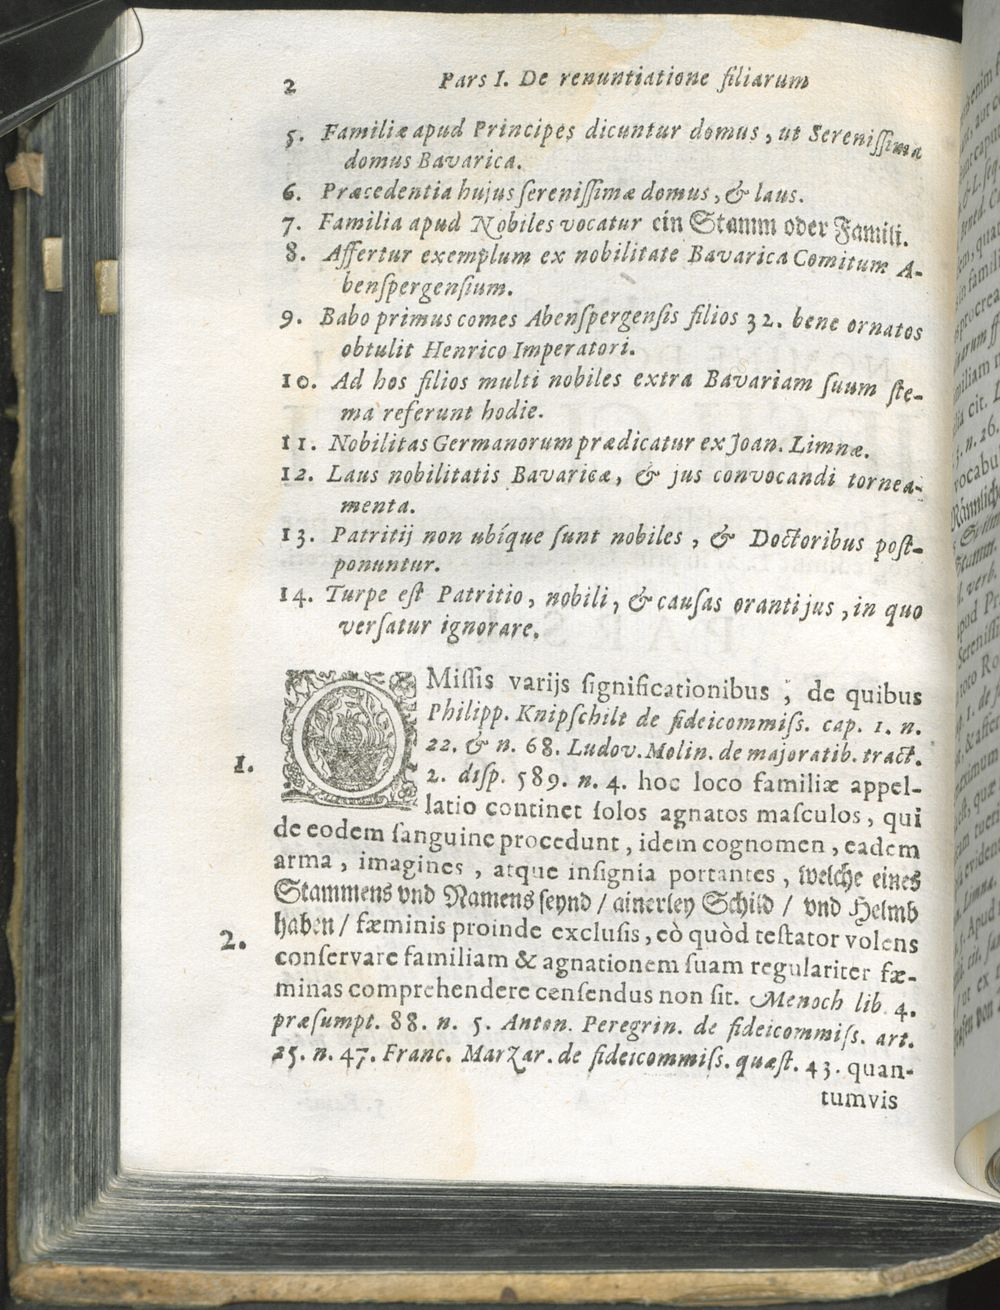 2 Pars I. De renuntiatione filiarum
5. Familiæ apud Principes dicuntur domus, ut Serenissima
domus Bavarica.
6. Præcedentia hujus serenissimæ domus, & laus.
7. Familia apud Nobiles vocatur ein Stamm oder Famili.
8. Affertur exemplum ex nobilitate Bavarica Comitum A-
benspergensium.
9. Babo primus comes Abenspergensis filios 32. bene ornatos
obtulit Henrico Imperatori.
10. Ad hos filios multi nobiles extra Bavariam suum ste-
ma referunt hodie.
11. Nobilitas Germanorum prædicatur ex Joan. Limnæ.
12. Laus nobilitatis Bavaricæ, & jus convocandi tornea-
menta.
13. Patritij non ubíque sunt nobiles, & Doctoribus post-
ponuntur.
14. Turpe est Patritio, nobili, & causas oranti jus, in quo
versatur ignorare.
OMissis varijs significationibus, de quibus
Philipp. Knipschilt de fideicommiss. cap. 1. n.
22. & n. 68. Ludov. Molin. de majoratib. tract.
1. 2. disp. 589. n. 4. hoc loco familiæ appel-
latio continet solos agnatos masculos, qui
de eodem sanguine procedunt, idem cognomen, eadem
arma, imagines, atque insignia portantes, welche eines
Stammens vnd Namens seynd / ainerley Schild / vnd Helmb
haben / fæminis proinde exclusis, eò quòd testator volens
2. conservare familiam & agnationem suam regulariter fæ-
minas comprehendere censendus non sit. Menoch lib. 4.
præsumpt. 88. n. 5. Anton. Peregrin. de fideicommiss. art.
25. n. 47. Franc. Marzar. de fideicommiss. quæst. 43. quan-
tumvis